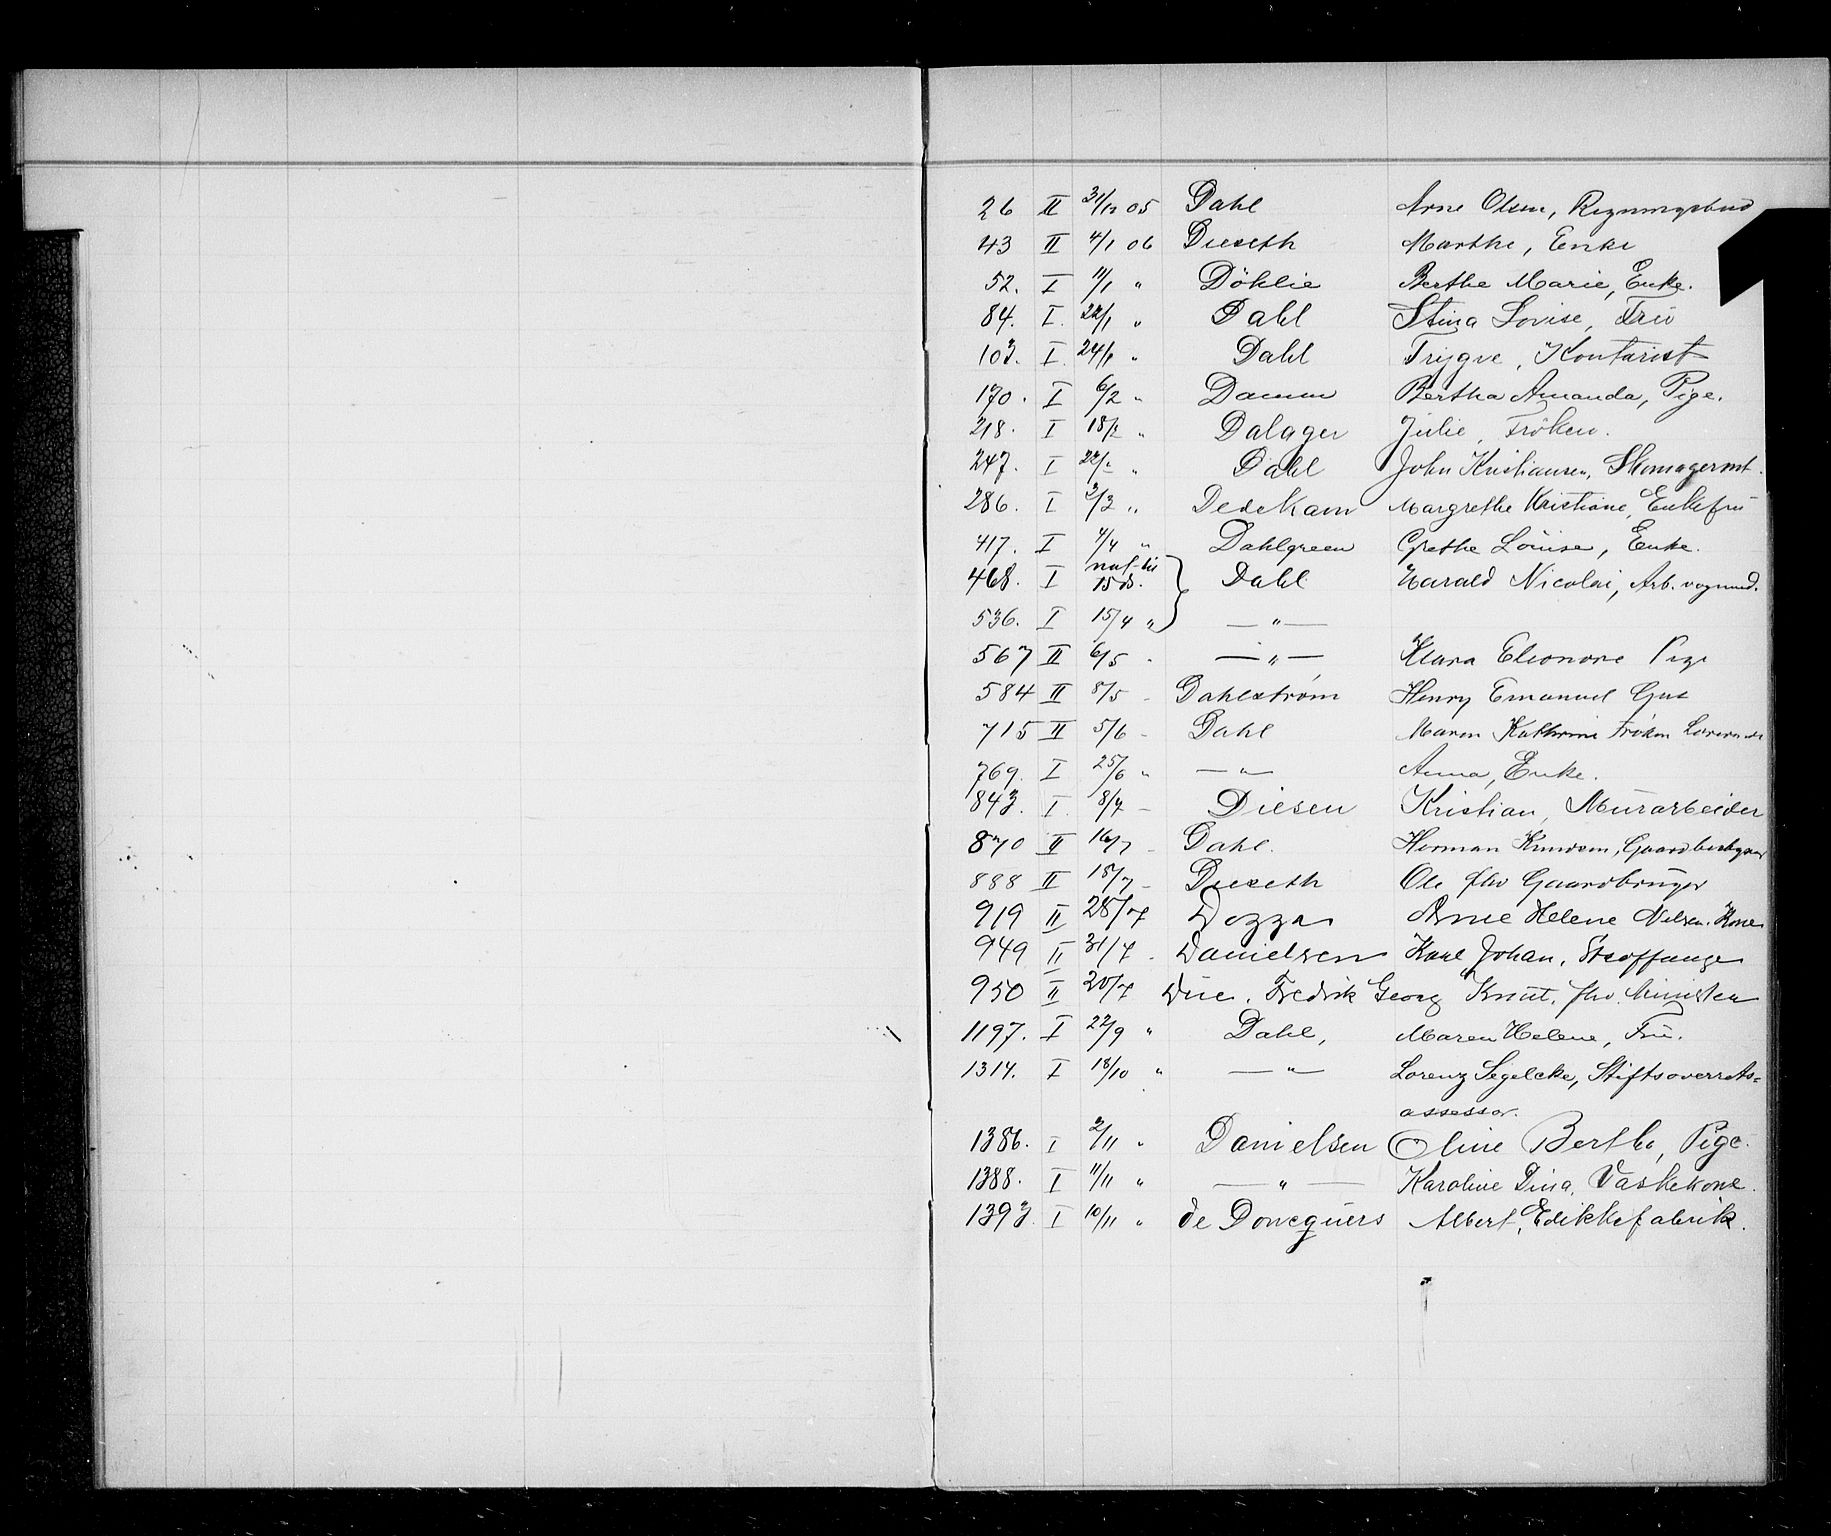 26 II 31/12 05 Dahl Arne Olsen, Regningsbud
43 II 4/1 06 Dieseth Marthe, Enke
52. I 11/1 " Döhlie Berthe Marie, Enke.
84. I. 22/1 " Dahl Stina Lovise, Fru
103. I. 24/1 " Dahl Trygve, Kontorist
170. I 6/2 " Damm Bertha Amanda, Pige.
218. I 18/2 " Dalager Julie, Fröken.
247. I 22/2 " Dahl John Kristiansen, Skomagermt.
286. I 2/3 " Dedekam Margrethe Kristiane, Enkefru
417. I 4/4 " Dahlgreen Grethe Louise, Enke.
468. I nat til 15 ds. Dahl Harald Nicolai, Arb. vognmd.
536. I 15/4 " — " —
567 II 6/5 - — " — Klara Eleonore Pige
584 II 8/5 - Dahlstrøm Henry Emanuel Gut
715 II 5/6 - Dahl Maren Kathrine Frøken
769. I 25/6 " — " — Anna, Enke.
843. I. 8/7 - Diesen Kristian, Murarbeider
870 II 16/7 - Dahl. Herman Knudsen, Gaardbestyrer
888 II 18/7 - Dieseth Ole fhv Gaardbruger
919 II 28/7 Dozza Anne Helene Nielsen. Kone
949 II 31/7 . Danielsen Karl Johan, Straffange
950 II 20/7 Due. Fredrik Georg Knut, fhv. Minister
1197. I 22/9 " Dahl, Maren Helene, Fru.
1314. I 18/10 " — " — Lorenz Segelcke, Stiftsoverrets=
assessor.
1386. I 2/11 " Danielsen Oline Bertha, Pige.
1388. I 11/11 " — " — Karoline Dina, Vaskekone.
1393. I 10/11 " de Doncquers Albert, Edikkefabrik.